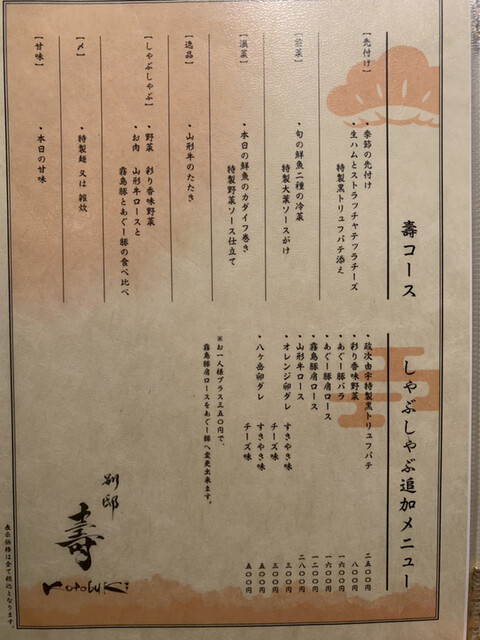 壽コース
【先付け】
・季節の先付け
・生ハムとストラッチャテッラチーズ
特製黒トリュフパテ添え
【前菜】
・旬の鮮魚二種の冷菜
特製大葉ソースがけ
【温菜】
・本日の鮮魚のカダイフ巻き
特製野菜ソース仕立て
【逸品】
・山形牛のたたき
【しゃぶしゃぶ】
・野菜 彩り香味野菜
・お肉 山形牛ロースと
霧島豚とあぐー豚の食べ比べ
【〆】
・特製麺 又は 雑炊
【甘味】
・本日の甘味
しゃぶしゃぶ追加メニュー
・政次由宇特製黒トリュフパテ 二五〇〇円
・彩り香味野菜 八〇〇円
・あぐー豚バラ 一六〇〇円
・あぐー豚肩ロース 一六〇〇円
・霧島豚肩ロース 一二〇〇円
・山形牛ロース 二八〇〇円
・オレンジ卵ダレ すきやき味 三〇〇円
チーズ味 三〇〇円
・八ヶ岳卵ダレ すきやき味 五〇〇円
チーズ味 五〇〇円
※お一人様プラス三五〇円で、
霧島豚肩ロースをあぐー豚へ変更出来ます。
別邸
壽
Kotobuki
表示価格は全て税込となります。